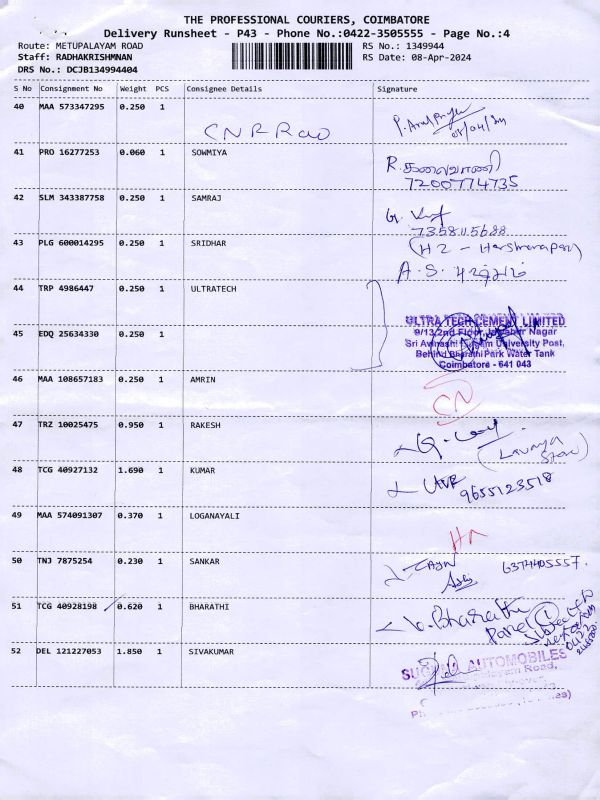 THE PROFESSIONAL COURIERS, COIMBATORE
Delivery Runsheet - P43 - Phone No.:0422-3505555 - Page No.:4
Route: METUPALAYAM ROAD RS No.: 1349944
Staff: RADHAKRISHMNAN RS Date: 08-Apr-2024
DRS No.: DCJB134994404
S No Consignment No Weight PCS Consignee Details Signature
40 MAA 573347295 0.250 1
CNR Rao
08/04/24
41 PRO 16277253 0.060 1 SOWMIYA
R. கலைவாணி
7200774735
42 SLM 343387758 0.250 1 SAMRAJ
7358115688
43 PLG 600014295 0.250 1 SRIDHAR
A.S.
44 TRP 4986447 0.250 1 ULTRATECH
ULTRA TECH CEMENT LIMITED
9/13, 2nd Floor, Jawahar Nagar
45 EDQ 25634330 0.250 1
Sri Avinashi University Post,
Behind Bharathi Park Water Tank
Coimbatore - 641 043
46 MAA 108657183 0.250 1 AMRIN
CN
47 TRZ 10025475 0.950 1 RAKESH
48 TCG 40927132 1.690 1 KUMAR
9655123518
49 MAA 574091307 0.370 1 LOGANAYALI
50 TNJ 7875254 0.230 1 SANKAR
6374405557.
51 TCG 40928198 0.620 1 BHARATHI
Bharathi
52 DEL 121227053 1.850 1 SIVAKUMAR
AUTOMOBILES
Road,